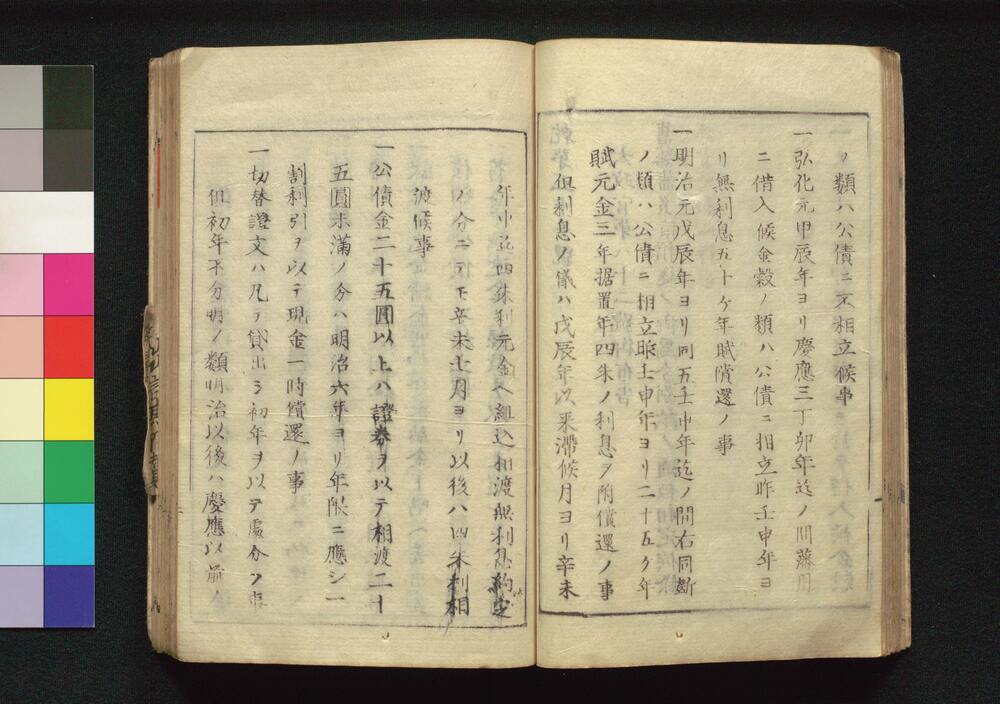 ノ類ハ公債ニ不相立候事
一弘化元甲辰年ヨリ慶應三丁卯年迄ノ間藩用
ニ借入候金穀ノ類ハ公債ニ相立昨壬申年ヨ
リ無利息五十ケ年賦償還ノ事
一明治元戊辰年ヨリ同五壬申年迄ノ間右同斷
ノ類ハ公債ニ相立昨壬申年ヨリ二十五ケ年
賦元金三年据置年四朱ノ利息ヲ附償還ノ事
但利息ノ儀ハ戊辰年以来滞候月ヨリ辛未
年中迄四朱利元金ヘ組込相渡無利息約定
ノ分ニテモ辛未七月ヨリ以後ハ四朱利相
渡候事
一公債金二十五圓以上ハ證券ヲ以テ相渡二十
五圓未満ノ分ハ明治六年ヨリ年限ニ應シ一
割利引ヲ以テ現金一時償還ノ事
一切替證文ハ凡テ貸出シ初年ヲ以テ處分ノ事
但初年不分明ノ類明治以後ハ慶應以前